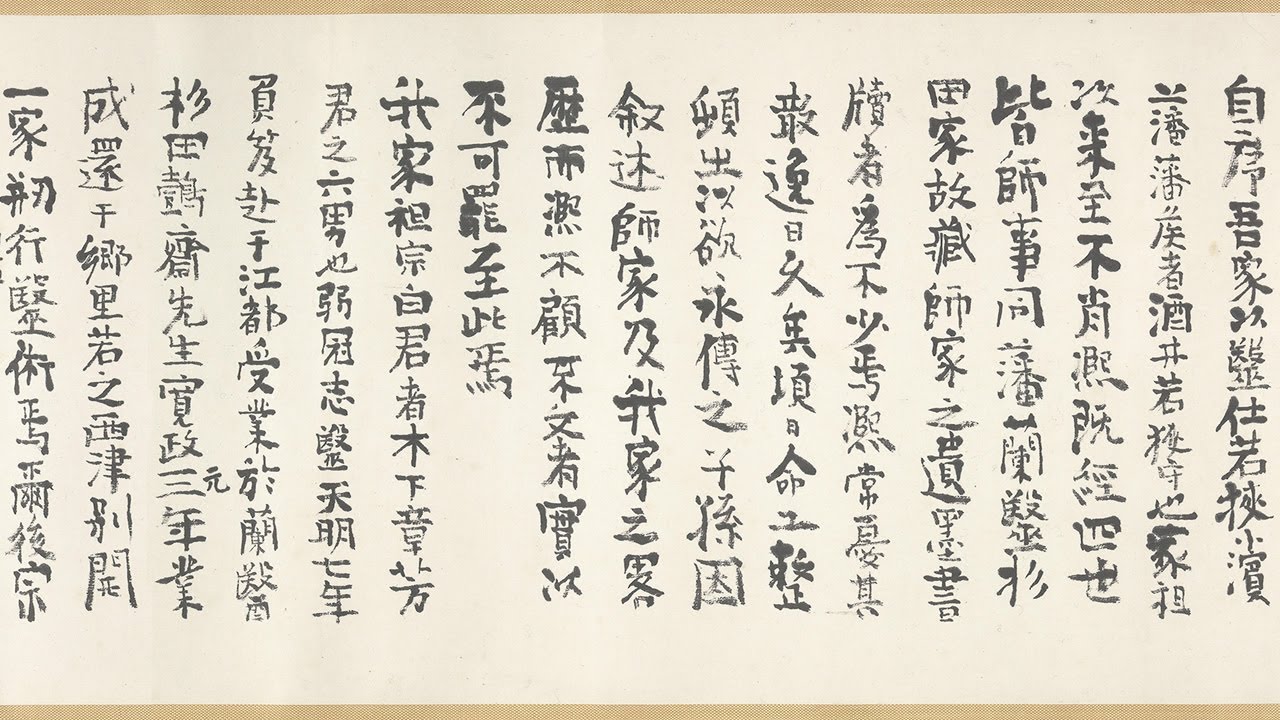 自序吾家以醫仕若狹小濱
藩藩侯者酒井若狹守也家祖
以来至不肖凞既經四世
皆師事同藩蘭醫杉
田家故藏師家之遺墨書
牘者爲不少焉凞常憂其
散逸日久矣頃日命工整
頓出以欲永傳之子孫因
叙述師家及我家之畧
歷而凞不顧不文者實以
不可罷至此焉
我家祖宗白君者木下章芳
君之六男也弱冠志醫天明七年
負笈赴于江都受業於蘭醫
杉田鷧齋先生寛政三年業
元
成還于鄉里若之西津別開
一家刱行醫術焉爾後宗